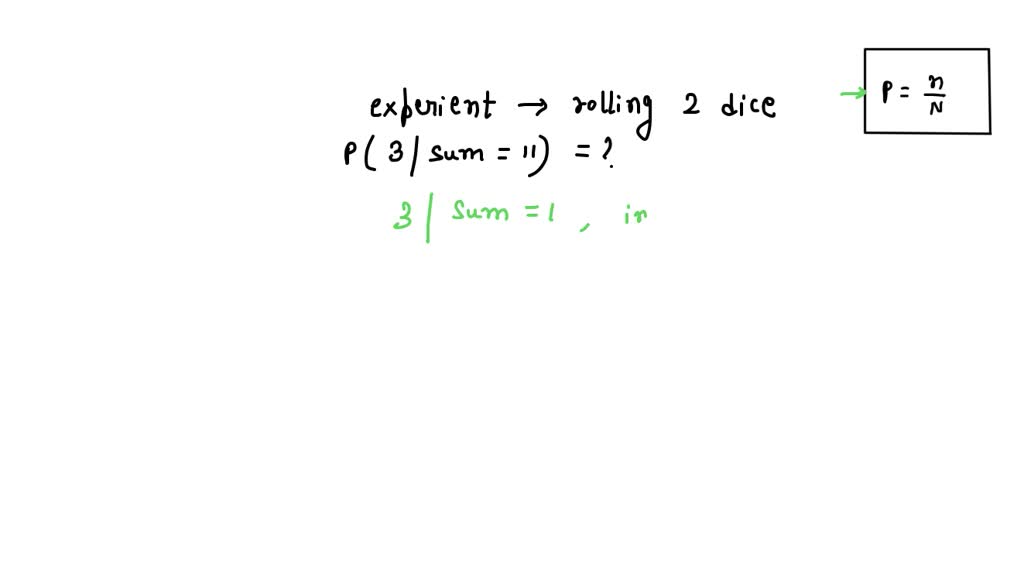 experient → rolling 2 dice
P(3 | sum = 11) = ?
3 | sum = 1 , in
→ P = n/N